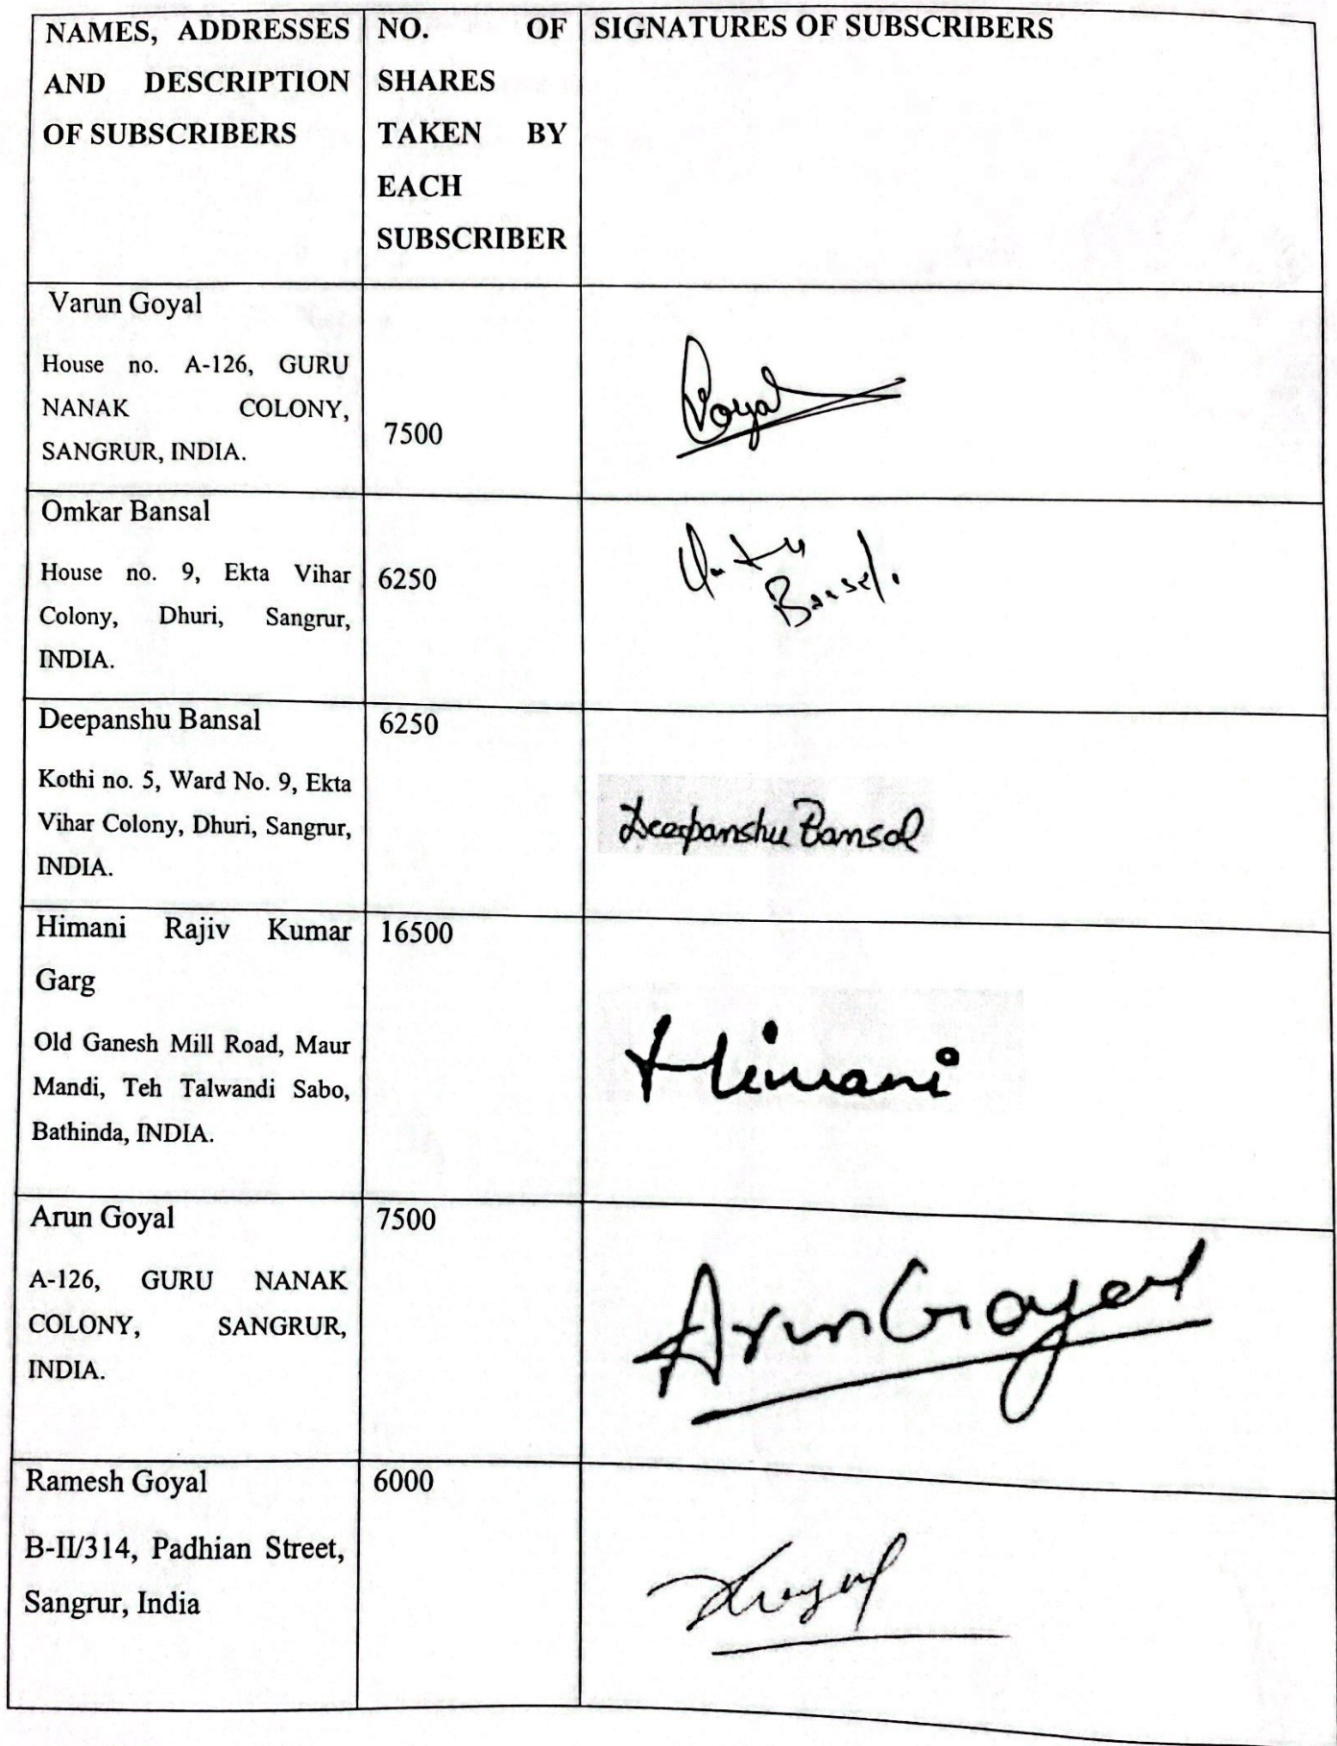 NAMES, ADDRESSES
AND DESCRIPTION
OF SUBSCRIBERS
NO. OF
SHARES
TAKEN BY
EACH
SUBSCRIBER
SIGNATURES OF SUBSCRIBERS
Varun Goyal
House no. A-126, GURU
NANAK COLONY,
SANGRUR, INDIA.
7500
Goyal
Omkar Bansal
House no. 9, Ekta Vihar
Colony, Dhuri, Sangrur,
INDIA.
6250
Bansal.
Deepanshu Bansal
Kothi no. 5, Ward No. 9, Ekta
Vihar Colony, Dhuri, Sangrur,
INDIA.
6250
Deepanshu Bansal
Himani Rajiv Kumar
Garg
Old Ganesh Mill Road, Maur
Mandi, Teh Talwandi Sabo,
Bathinda, INDIA.
16500
Himani
Arun Goyal
A-126, GURU NANAK
COLONY, SANGRUR,
INDIA.
7500
Arun Goyal
Ramesh Goyal
B-II/314, Padhian Street,
Sangrur, India
6000